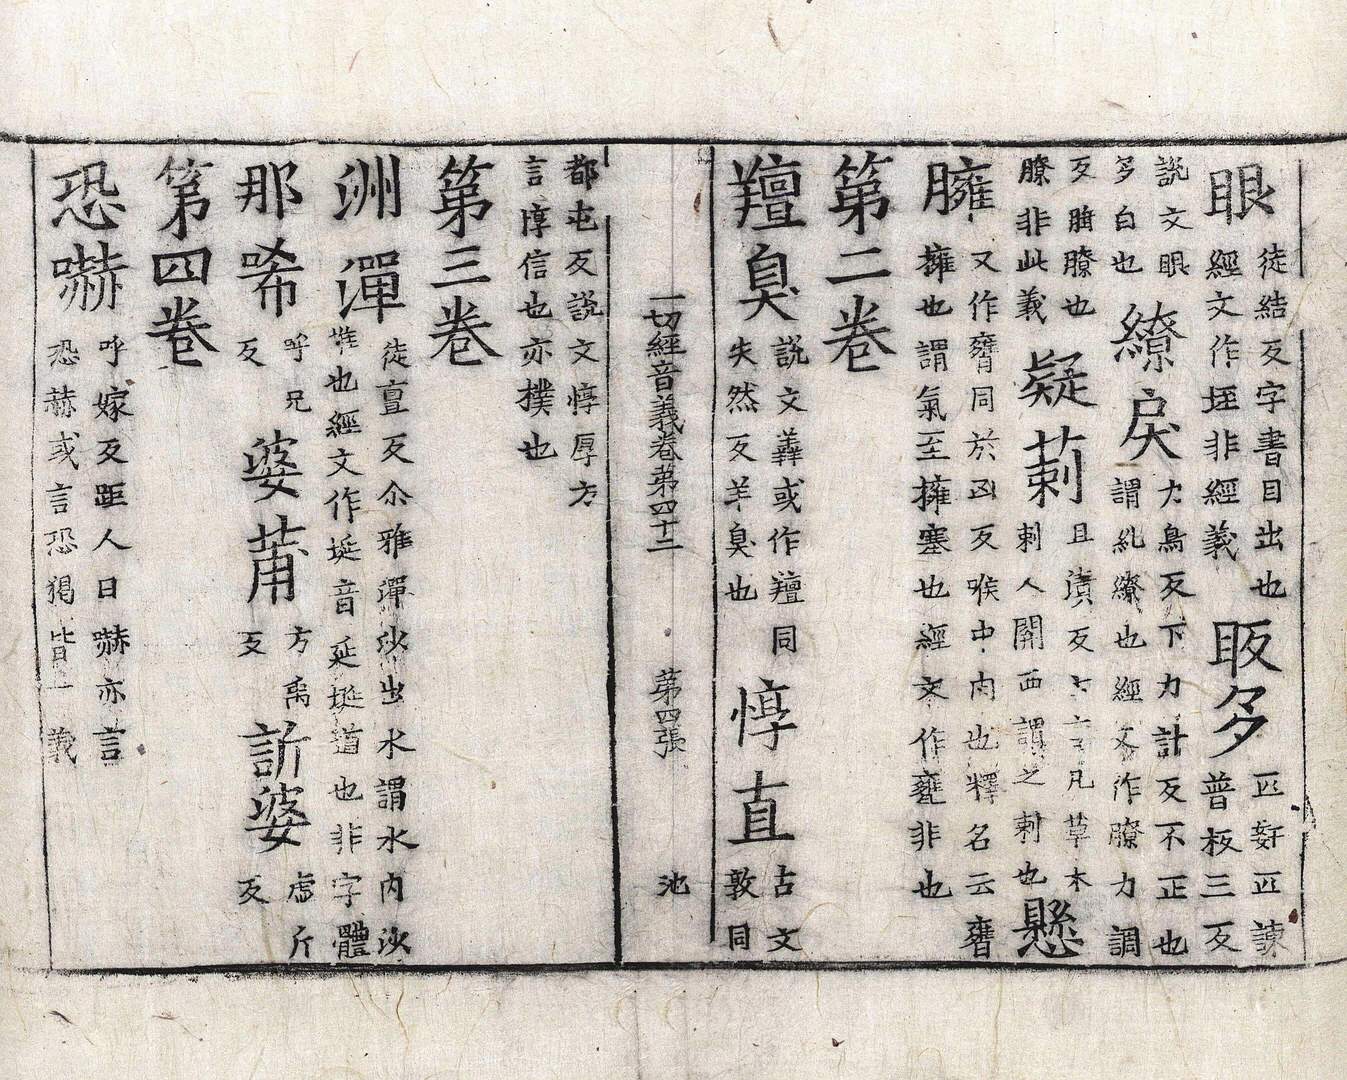 眼徒結反字書目出也
經文作垤非經義
眅多匹姧匹諫
普板三反
説文眼
多白也
繚戾力鳥反下力計反不正也
謂糺繚也經文作膫力調
反腨膫也
膫非此義
疑莿且漬反
凡草木
刺人關西謂之莿也
懸
癰又作𦡳同於凶反喉中肉也釋名云𦡳
擁也謂氣至擁塞也經文作甕非也
第二卷
羶臭説文羴或作羶同
失然反羊臭也
惇直古文
敦同
一切經音義卷第四十二 第四張 池
都屯反説文惇厚方
言惇信也亦撲也
第三卷
洲潬徒亶反尒雅潬沙出水謂水内沙
堆也經文作埏音延埏道也非字體
那唏呼兄
反
婆莆方禹
反
訢婆虛斤
反
第四卷
恐嚇呼嫁反距人曰嚇亦言
恐赫或言恐猲皆一義